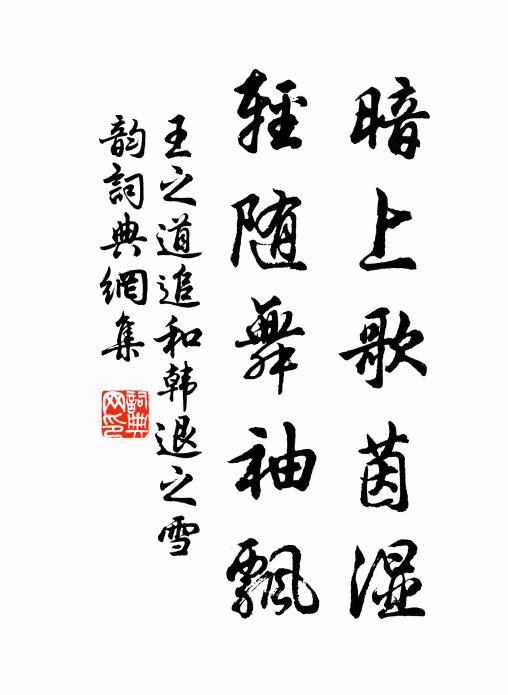 暗上歌茵湿
輕随舞袖飄
王之道追和韩退之雪
韵詞典網集
詞典网印